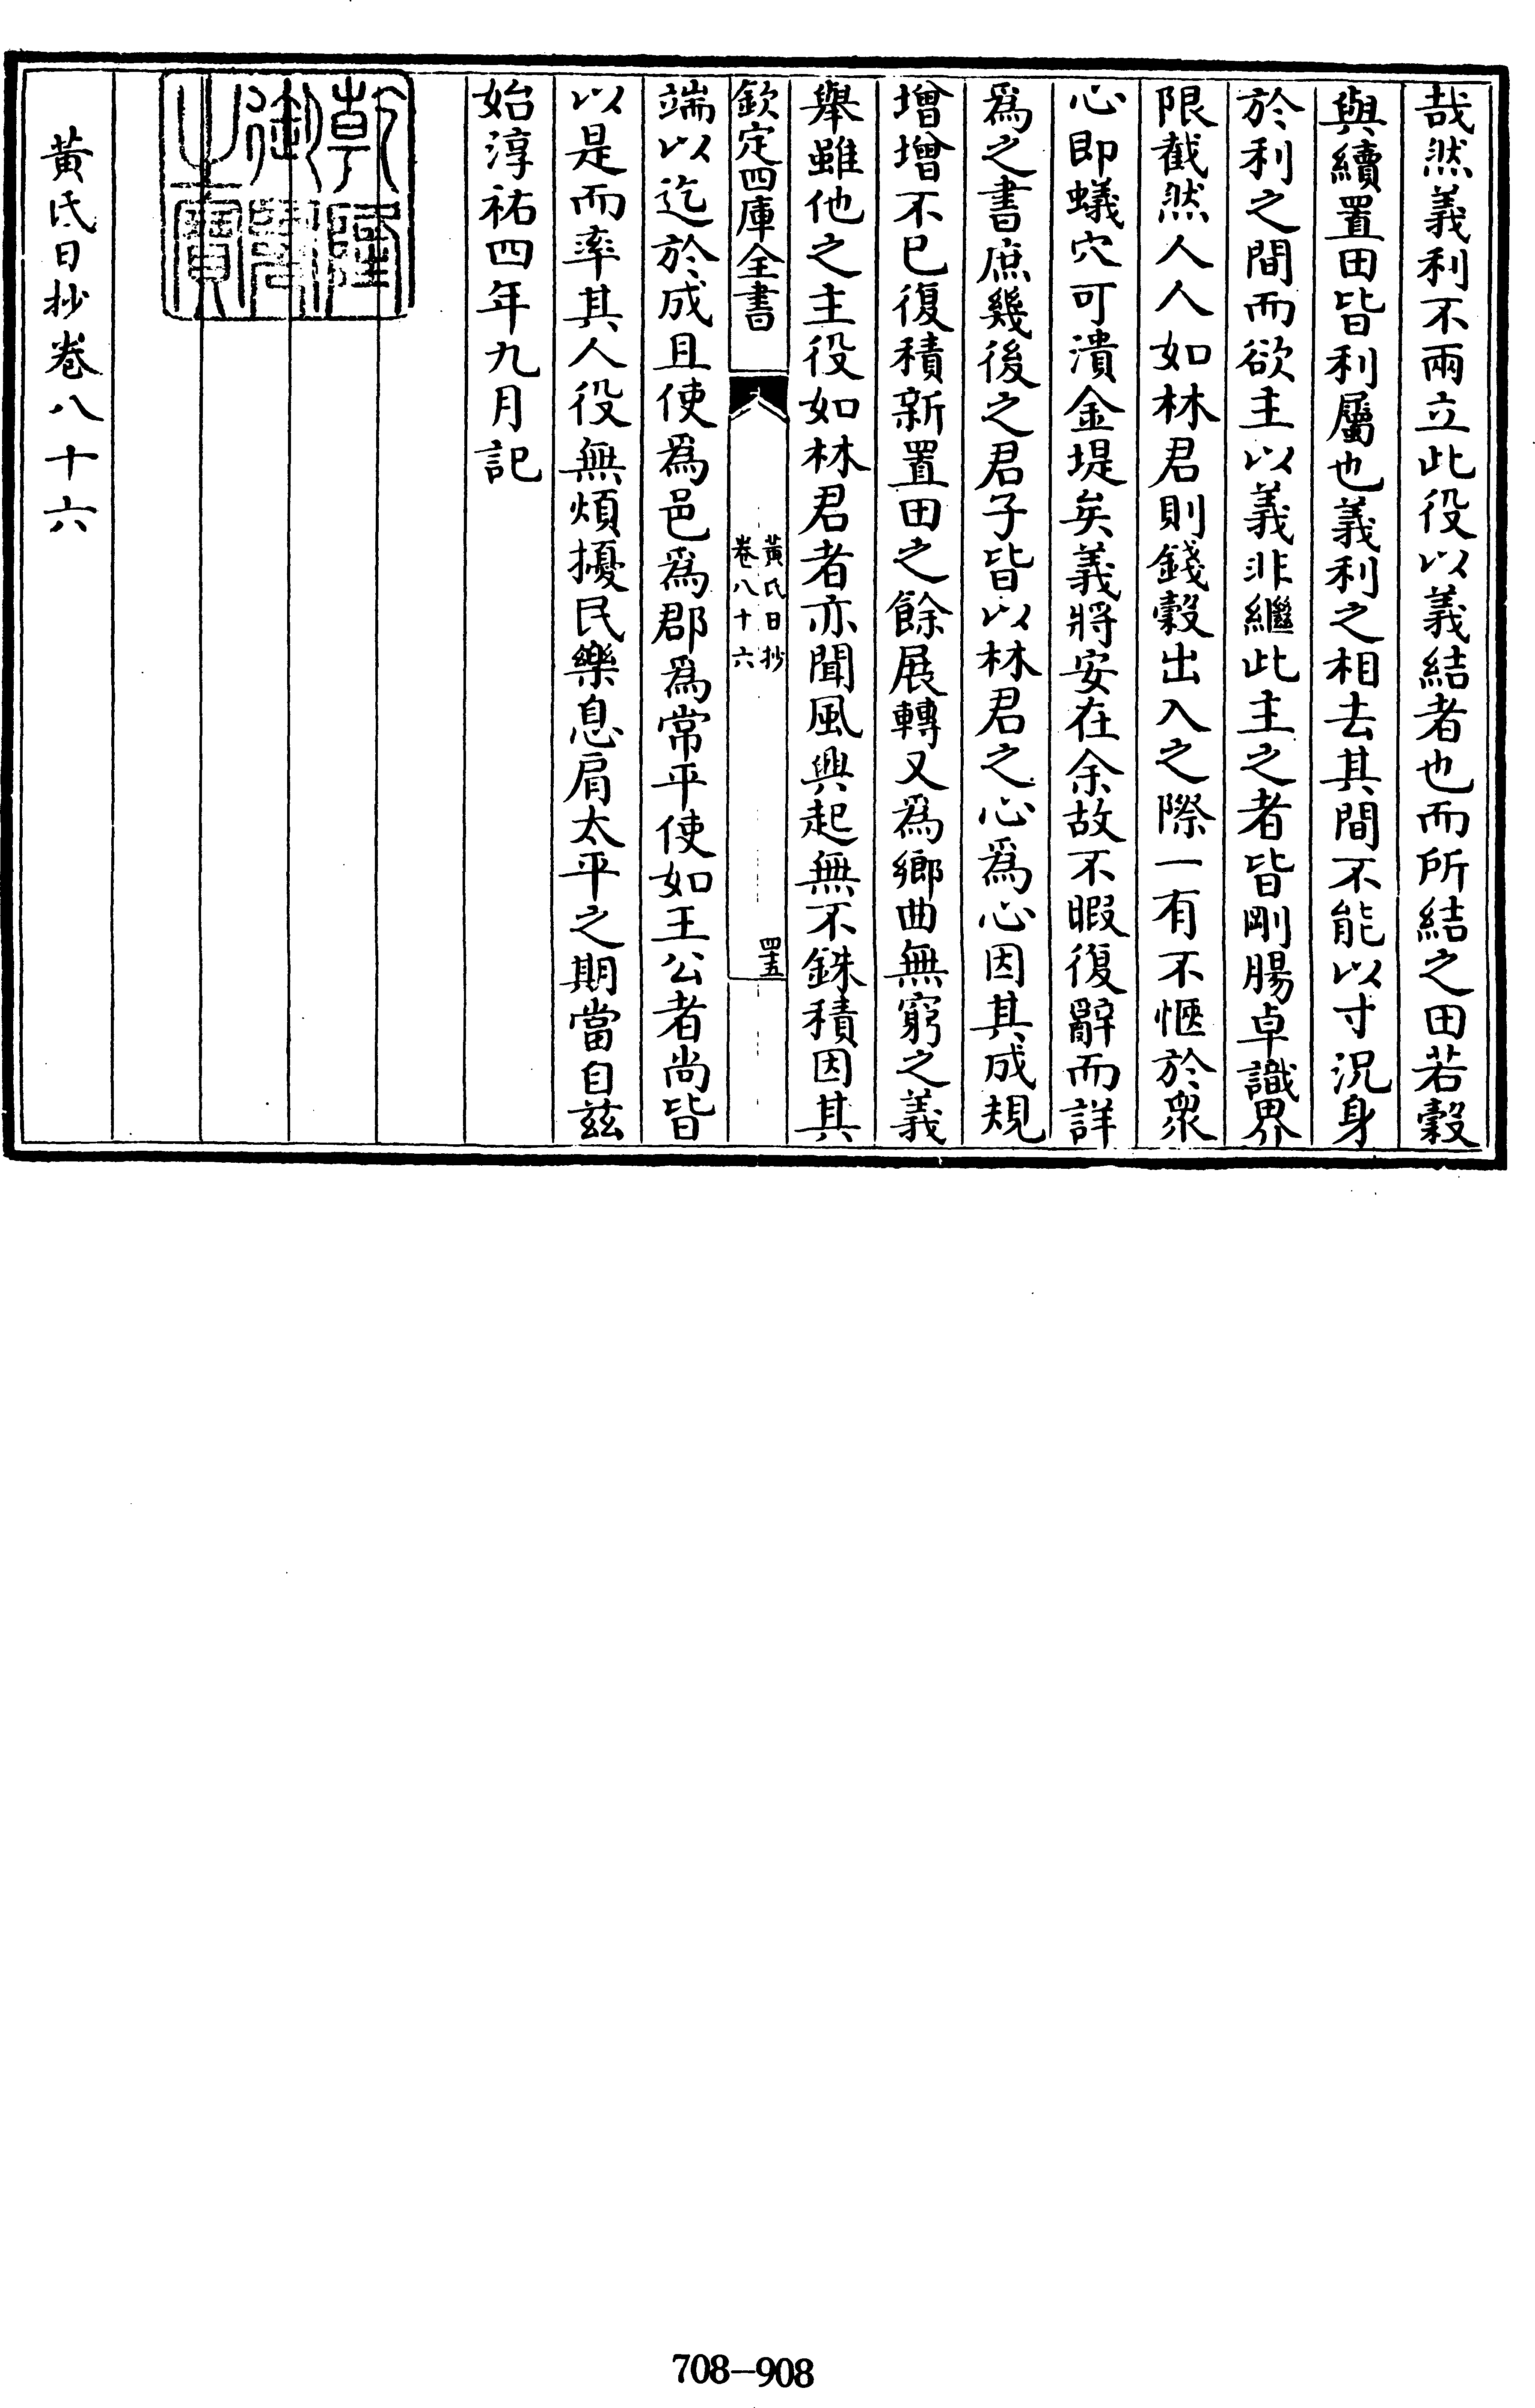 哉然義利不兩立此役以義結者也而所結之田若穀
與續置田皆利屬也義利之相去其間不能以寸況身
於利之間而欲主以義非繼此主之者皆剛腸卓識界
限截然人人如林君則錢穀出入之際一有不愜於衆
心即蟻穴可潰金堤矣義將安在余故不暇復辭而詳
為之書庶幾後之君子皆以林君之心為心因其成規
增增不已復積新置田之餘展轉又為鄉曲無窮之義
舉雖他之主役如林君者亦聞風興起無不銖積因其
欽定四庫全書
黃氏日抄
卷八十六
四五
端以迄於成且使為邑為郡為常平使如王公者尚皆
以是而率其人役無煩擾民樂息肩太平之期當自兹
始淳祐四年九月記
乾隆
御覽
之寶
黃氏日抄卷八十六
708-908